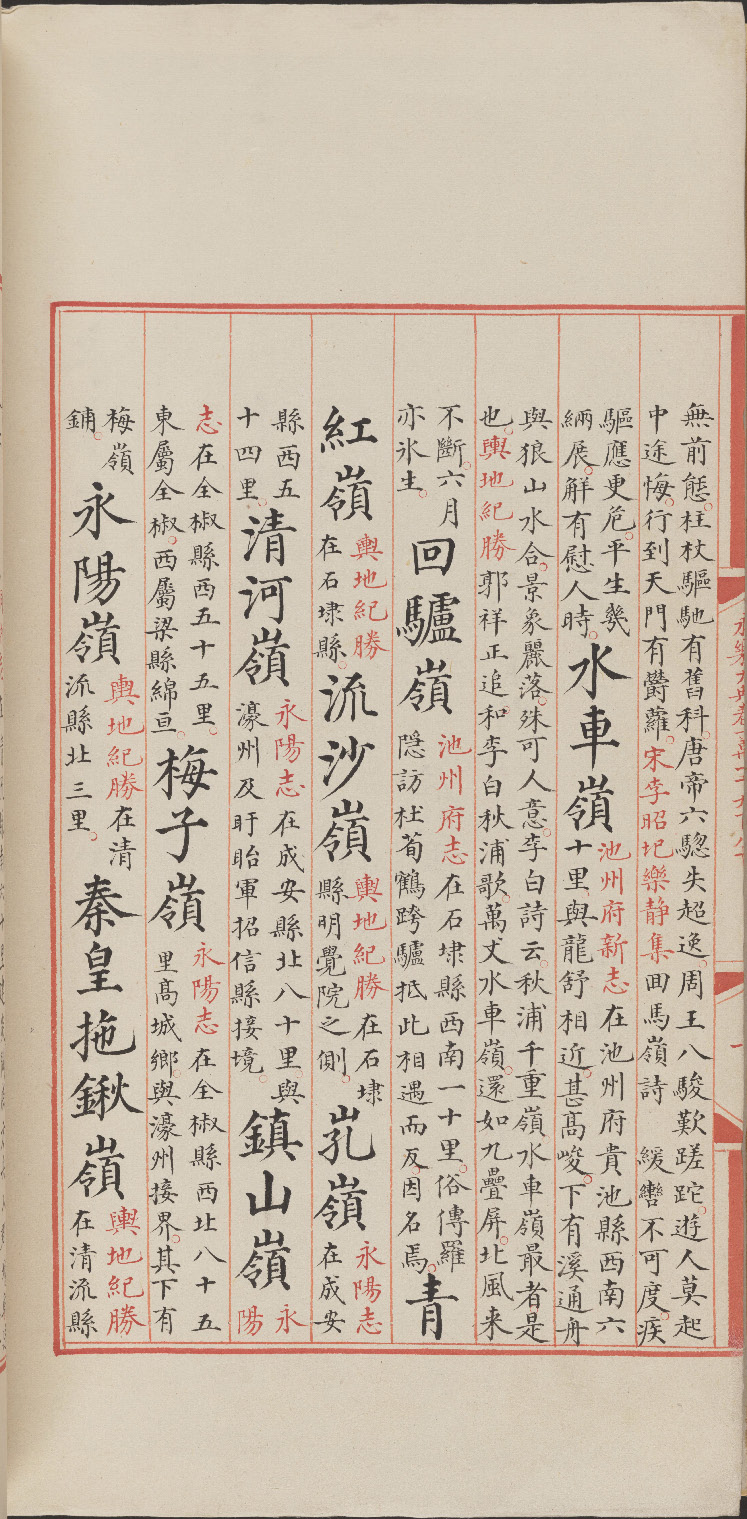 無前態。柱杖驅馳有舊科。唐帝六驄失超逸。周王八駿歎蹉跎。遊人莫起
中途悔。行到天門有欝蘿。宋李昭玘樂静集回馬嶺詩 緩轡不可度。疾
驅應更危。平生幾
緉屐。解有慰人時。
水車嶺
池州府新志在池州府貴池縣西南六
十里。與龍舒相近。甚髙峻。下有溪通舟
與狼山水合。景象麗落。殊可人意。李白詩云。秋浦千重嶺水車嶺最者是
也。輿地紀勝郭祥正追和李白秋浦歌。萬丈水車嶺。還如九疊屏。北風来
不斷。六月
亦氷生。
回驢嶺
池州府志在石埭縣西南一十里。俗傳羅
隠訪杜荀鶴跨驢抵此相遇而反。因名焉。
青
紅嶺
輿地紀勝
在石埭縣。
流沙嶺
輿地紀勝在石埭
縣明覺院之側。
嶺
永陽志
在成安
縣西五
十四里。
清河嶺
永陽志在成安縣北八十里與
濠州及盱眙軍招信縣接境。
鎮山嶺
永
陽
志在全椒縣西五十五里。
東屬全椒。西屬梁縣綿亘。
梅子嶺
永陽志在全椒縣西北八十五
里髙城鄉。與濠州接界。其下有
梅嶺
鋪。
永陽嶺
輿地紀勝在清
流縣北三里。
秦皇拖鍬嶺
輿地紀勝
在清流縣